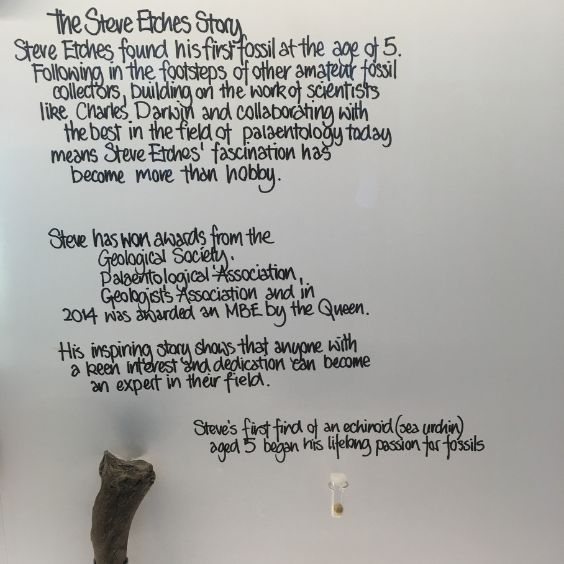 The Steve Etches Story
Steve Etches found his first fossil at the age of 5.
Following in the footsteps of other amateur fossil
collectors, building on the work of scientists
like Charles Darwin and collaborating with
the best in the field of palaentology today
means Steve Etches' fascination has
become more than hobby.
Steve has won awards from the
Geological Society.
Palaentological Association,
Geologists Association and in
2014 was awarded an MBE by the Queen.
His inspiring story shows that anyone with
a keen interest and dedication can become
an expert in their field.
Steve's first find of an echinoid (sea urchin)
aged 5 began his lifelong passion for fossils